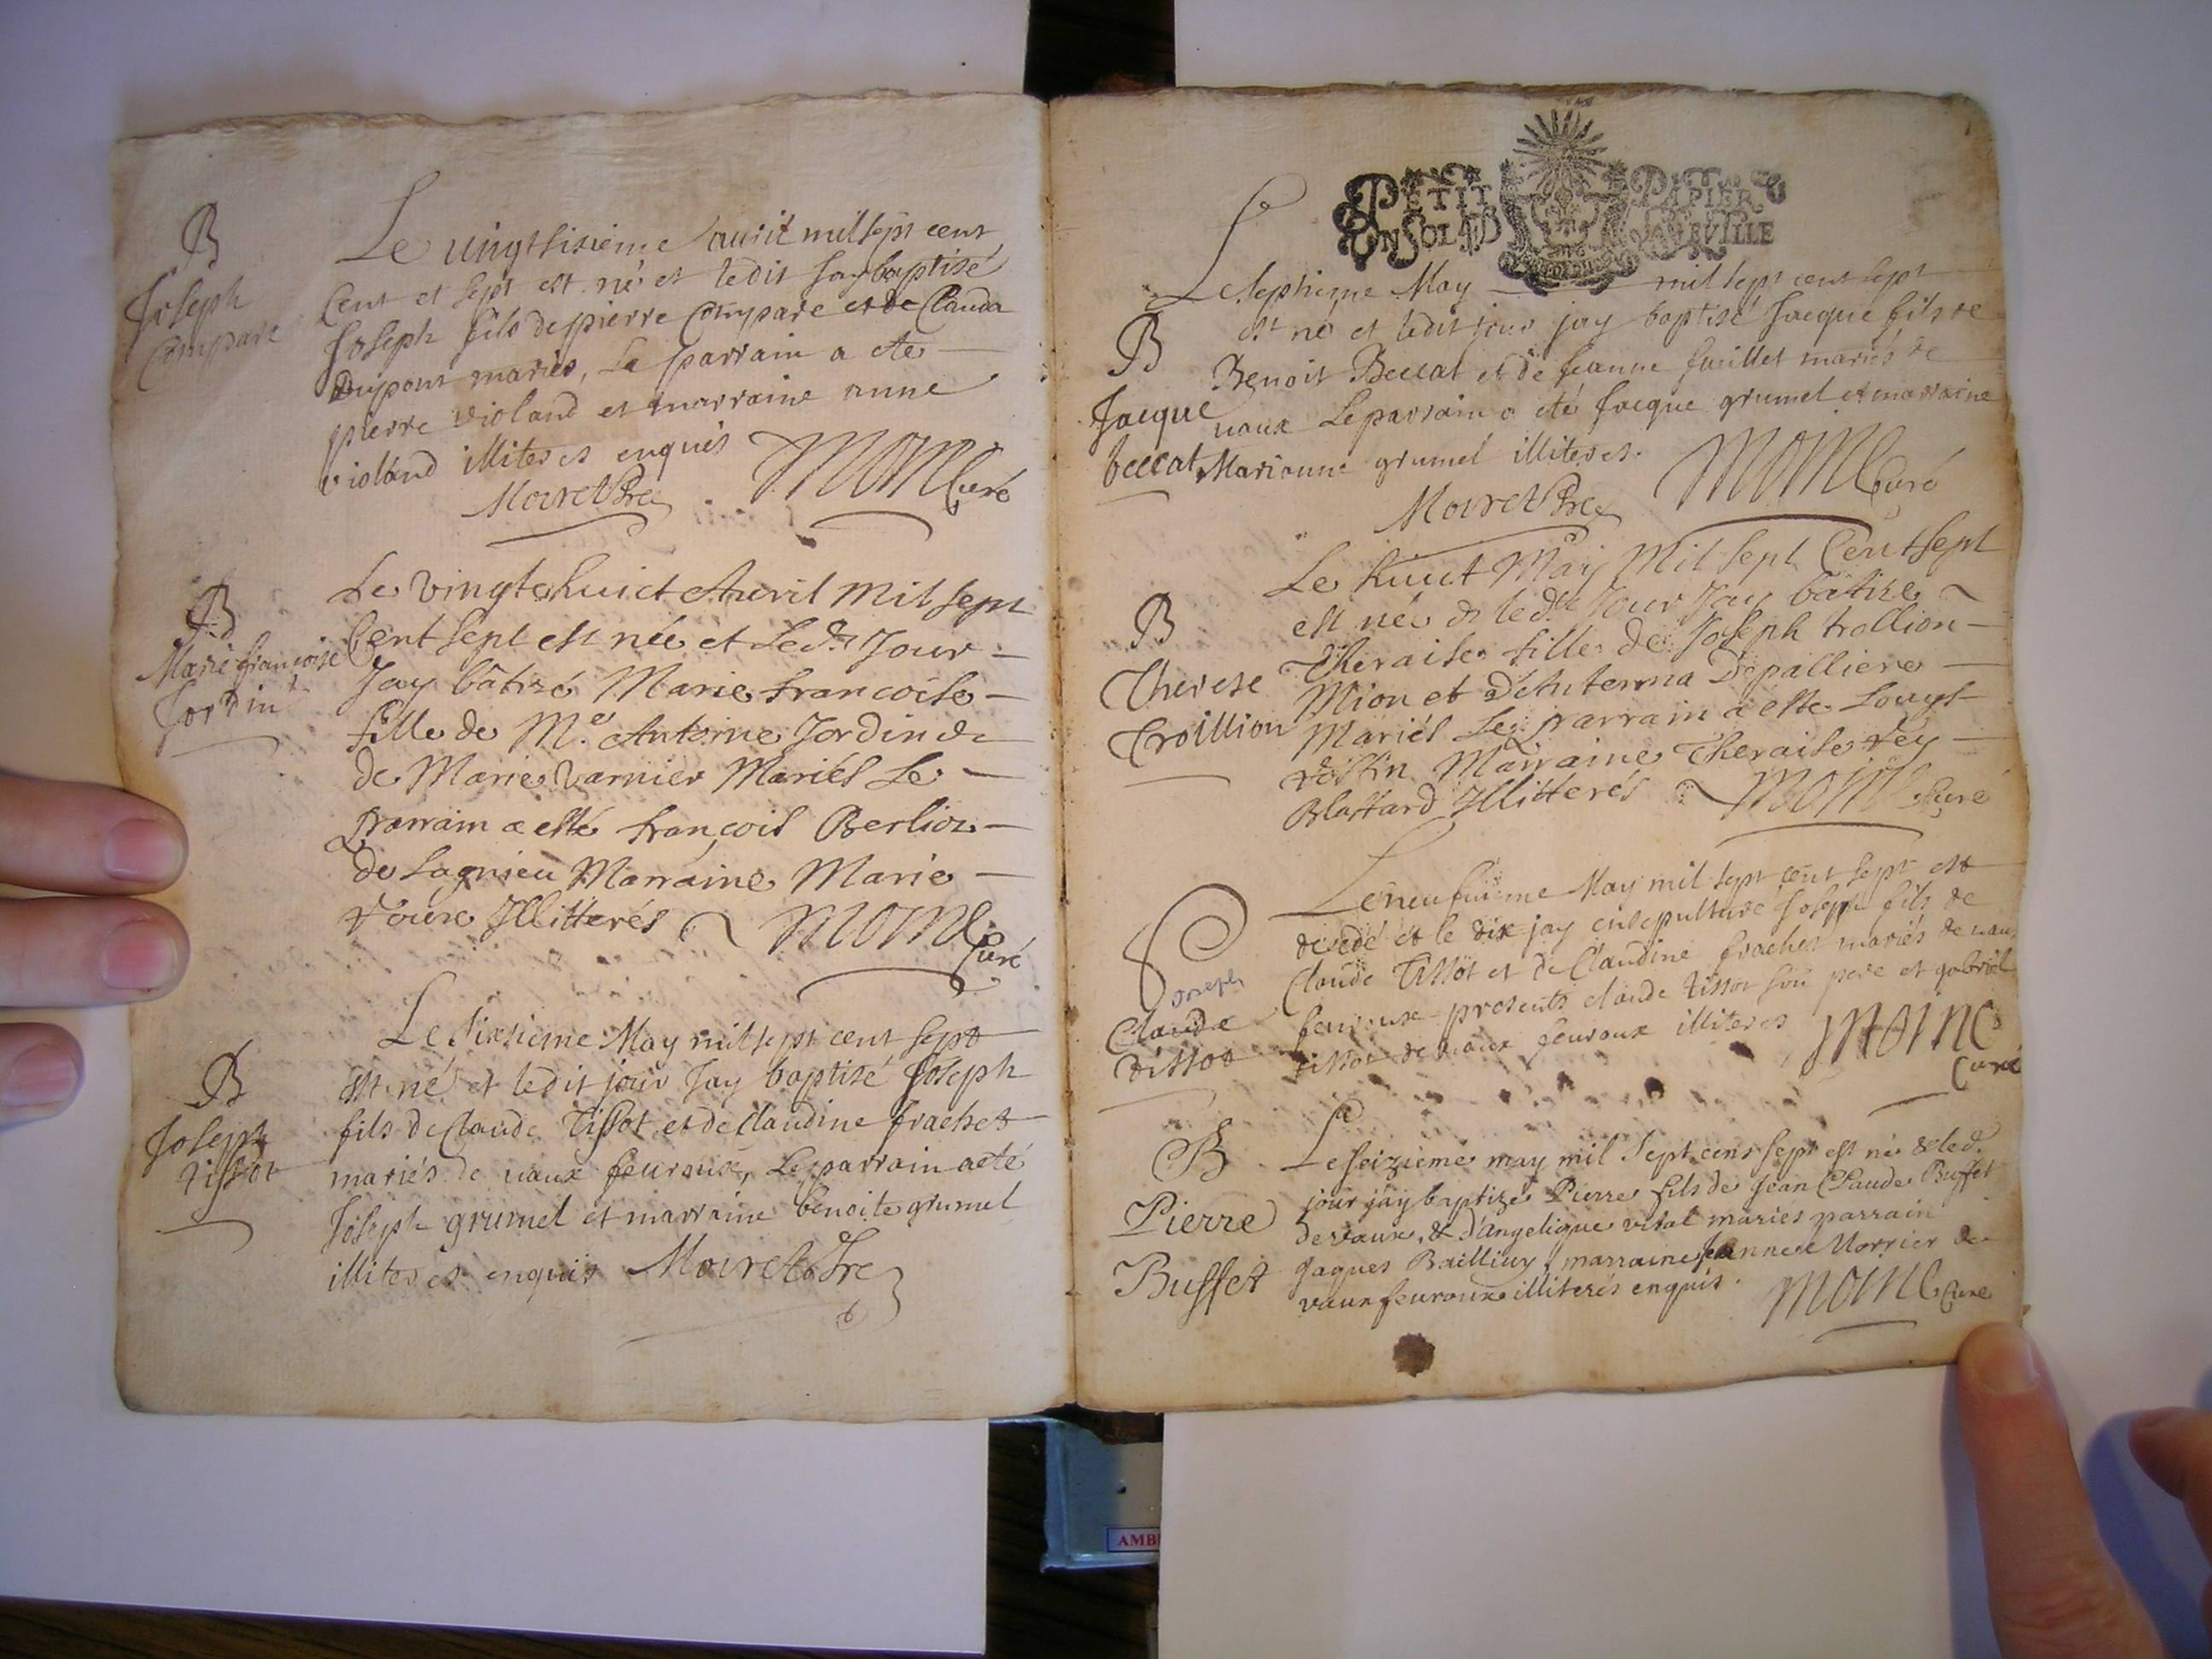 B
Joseph
Compare
Le vingtsisieme avril mil sept cent
Cent et sept est né et ledit Jay baptisé
Joseph fils de pierre Compare et de Clauda
Dupont mariés, Le parrain a ete
pierre violand et marraine anne
violand illiteres enquis
Moiret Pre MOINE Curé
B
Marie francoise
Jordin
Le Vingt huict Avril Mil Sept
Cent Sept est née et Led.t Jour
Jay bâtizé Marie francoise
fille de M.e Antoine Jordin &
de Marie Varnier Mariés Le
Parrain a esté françois Berlioz
de Lagnieu Marraine Marie
roux Illitterés MOINE
Curé
B
Joseph
tissot
Le sixsieme May mil sept cent sept
est né et ledit jour Jay baptisé Joseph
fils de Claude Tissot et de Claudine frachet
mariés de vaux feuroux, Le parrain a eté
Joseph grumel et marraine benoite grumel
illiteres enquis Moiret Pre
PETIT PAPIER
UN SOL
B
Jacque
beccat
Le Septieme May mil sept cent sept
est né et ledit jour jay baptisé Jacque fils de
Benoit Beccat et de Jeanne fueillet mariés de
vaux Le parrain a eté Jacque grumel et marraine
Marianne grumel illiteres.
Moiret Pre MOINE Curé
B
Therese
Troillion
Le huict May Mil Sept Cent Sept
est née & led.t Jour Jay bâtize
Theraise fille de Joseph trollion
Mion et d'Antenna Depalliere
Mariés Le parrain a esté Louys
Marraine Theraise rey
Blattard Illitterés MOINE Curé
Joseph
Claude
tissot
Le neufuieme May mil sept cent sept est
decedé et le dix jay ensepulture Joseph fils de
Claude Tissot et de Claudine frachet mariés de vaux
feuroux presents claude tissot son pere et gabriel
tissot de vaux feuroux illiteres MOINE
Curé
B
Pierre
Buffet
Le seizieme may mil Sept cens sept est né & led.
jour jay baptize Pierre fils de Jean Claude Buffet
de vaux, & d'Angelique vital mariés parrain
Jaques Bailliuy, marraine jeanne Morrier de
vaux feuroux illiterés enquis. MOINE Curé
AMB